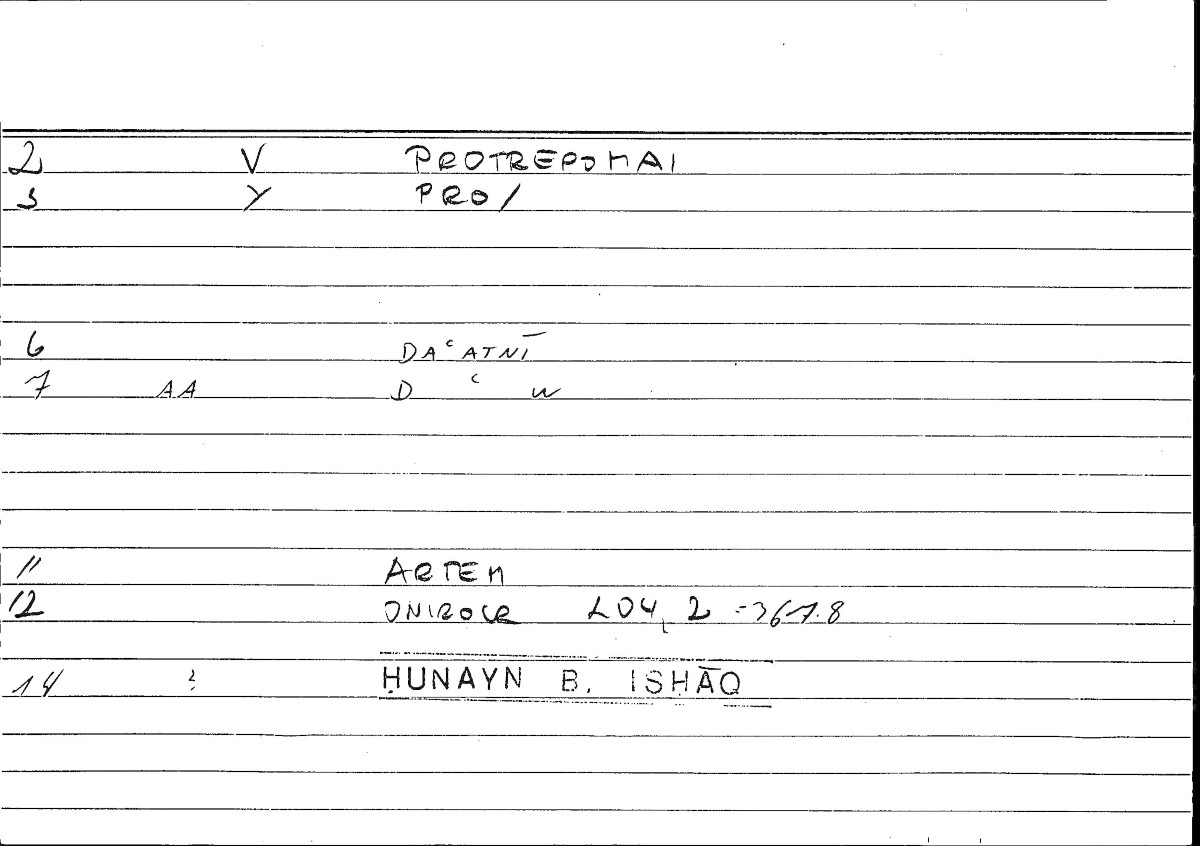 2 V PROTREPOMAI
3 Y PRO/
6 DAʿATNĪ
7 AA D ʿ W
11 ARTEM
12 ONIROCR 204, 2 =367.8
14 ? ḤUNAYN B. ISḤĀQ